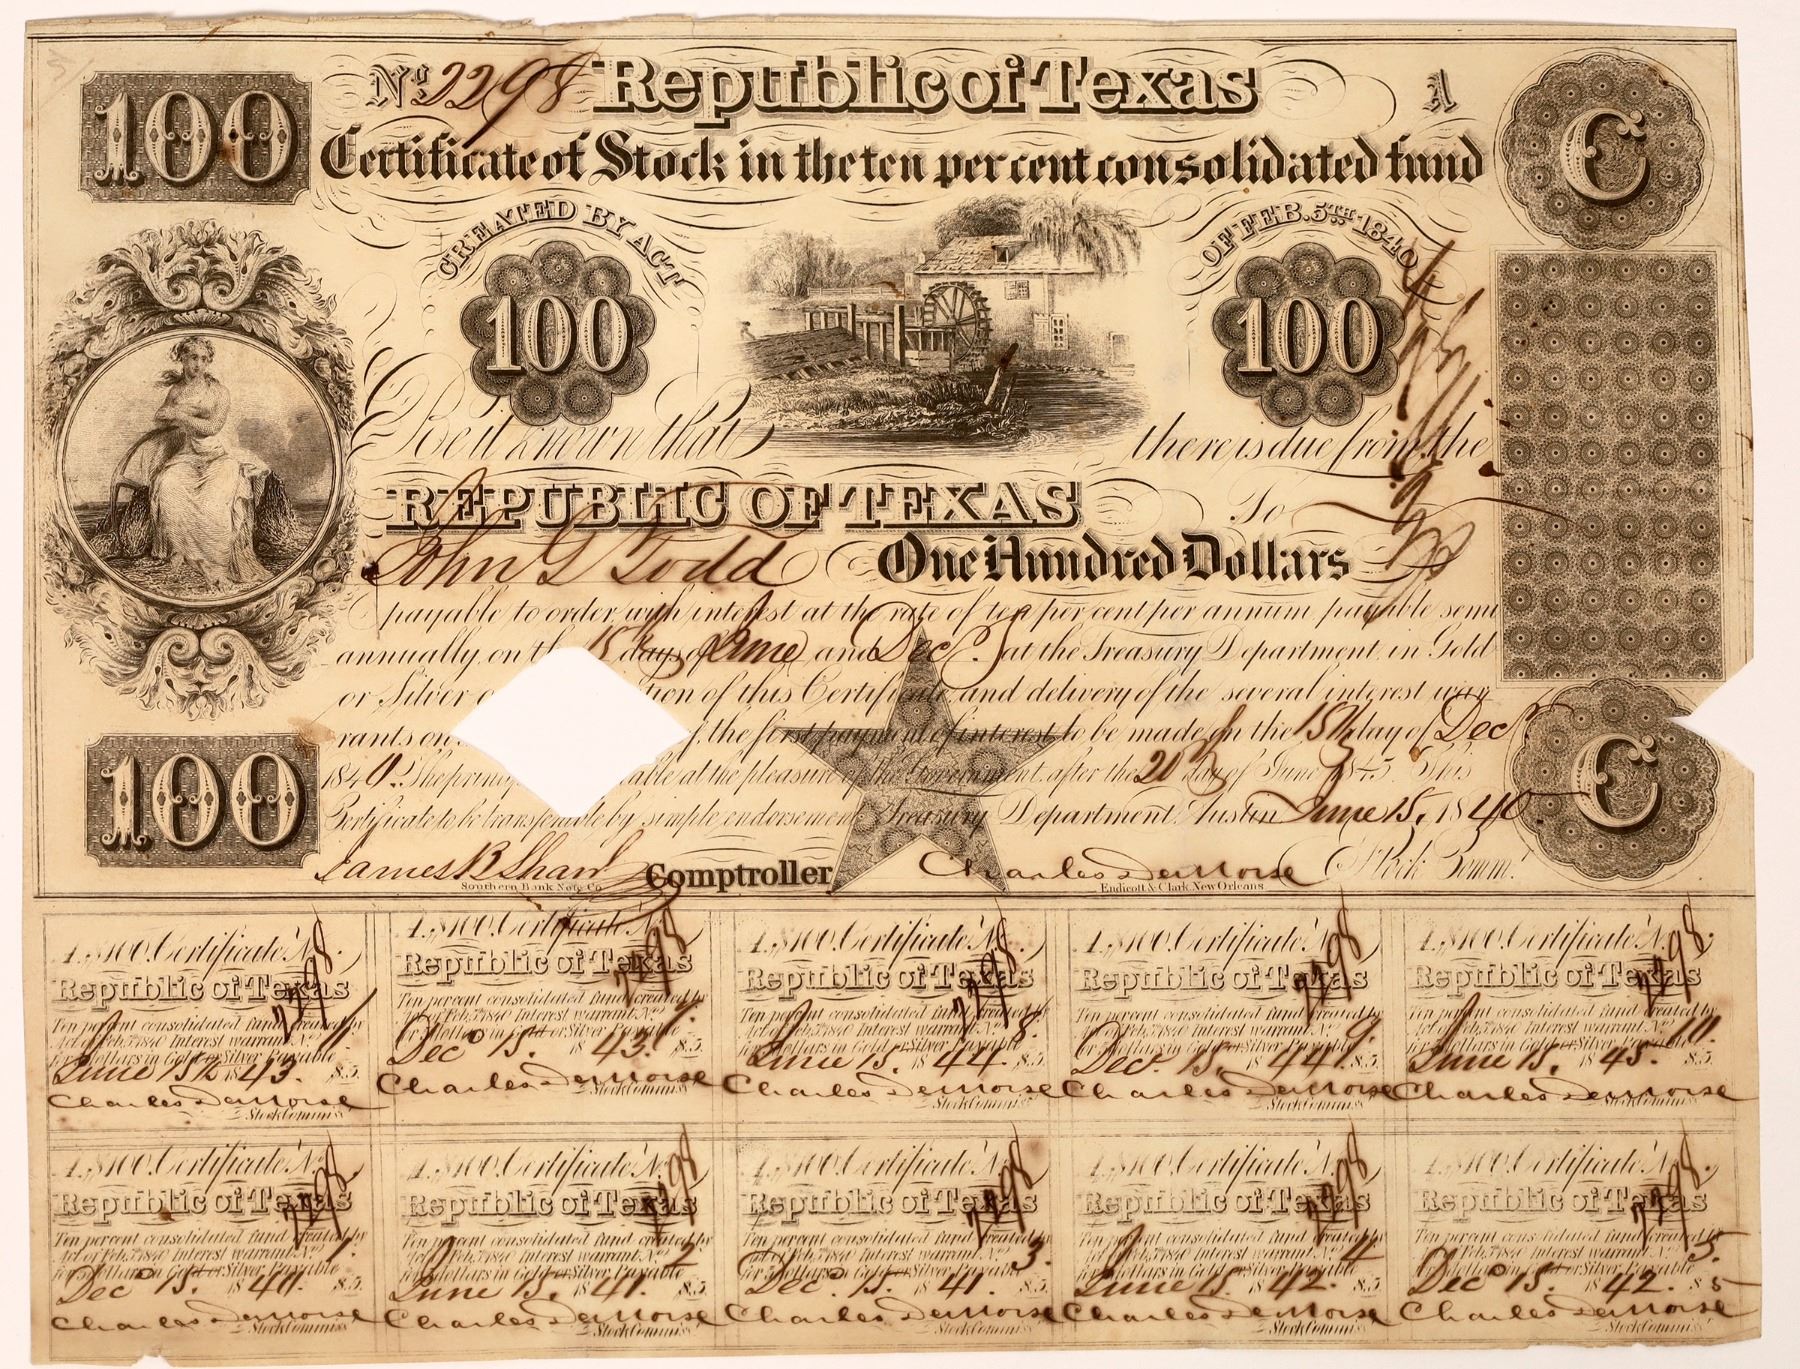 100
No. 2298 Republic of Texas A
C
Certificate of Stock in the ten per cent consolidated fund
CREATED BY ACT
OF FEB. 5TH 1840
100
100
Be it known that there is due from the
REPUBLIC OF TEXAS To
John G Todd One Hundred Dollars
payable to order, with interest at the rate of ten per cent per annum payable semi
annually, on the 15 days of June and Dec. at the Treasury Department, in Gold
or Silver of this Certificate and delivery of the several interest war
rants on the first payment of interest to be made on the 15th day of Dec.
1840. The able at the pleasure of the Government after the 20 day of June 1845. This
Certificate to be transferable by simple endorsement. Treasury Department, Austin June 15, 1840
100
C
James B Shaw Comptroller Charles DeMorse Stock Comm.
Southern Bank Note Co.
Endicott & Clark New Orleans
A. $100. Certificate No. 2298
Republic of Texas
Ten per cent consolidated fund created by
Act of Feb. 5th 1840 Interest warrant No.
for Dollars in Gold or Silver Payable
June 15th 1843. $5.
Charles DeMorse
Stock Commiss
A. $100. Certificate N. 2298
Republic of Texas
Ten per cent consolidated fund created by
Act of Feb. 5th 1840 Interest warrant No. 7.
for Dollars in Gold or Silver Payable
Dec 15. 1843. $5.
Charles DeMorse
Stock Commiss
A. $100. Certificate N. 2298.
Republic of Texas
Ten per cent consolidated fund created by
Act of Feb. 5th 1840 Interest warrant No. 8.
for Dollars in Gold or Silver Payable
June 15. 1844. $5.
Charles DeMorse
Stock Commiss
A. $100. Certificate N. 2298
Republic of Texas
Ten per cent consolidated fund created by
Act of Feb. 5th 1840 Interest warrant No. 9.
for Dollars in Gold or Silver Payable
Dec. 15. 1844. $5.
Charles DeMorse
Stock Commiss
A. $100. Certificate N. 2298.
Republic of Texas
Ten per cent consolidated fund created by
Act of Feb. 5th 1840 Interest warrant No. 10.
for Dollars in Gold or Silver Payable
June 15. 1845. $5.
Charles DeMorse
Stock Commiss
A. $100. Certificate N. 2298.
Republic of Texas
Ten per cent consolidated fund created by
Act of Feb. 5th 1840 Interest warrant No. 1.
for Dollars in Gold or Silver Payable
Dec 15. 1840. $5.
Charles DeMorse
Stock Commiss
A. $100. Certificate N. 2298
Republic of Texas
Ten per cent consolidated fund created by
Act of Feb. 5th 1840 Interest warrant No. 2
for Dollars in Gold or Silver Payable
June 15. 1841. $5.
Charles DeMorse
Stock Commiss
A. $100. Certificate N. 2298
Republic of Texas
Ten per cent consolidated fund created by
Act of Feb. 5th 1840 Interest warrant No. 3.
for Dollars in Gold or Silver Payable
Dec. 15. 1841. $5.
Charles DeMorse
Stock Commiss
A. $100. Certificate N. 2298
Republic of Texas
Ten per cent consolidated fund created by
Act of Feb. 5th 1840 Interest warrant No. 4
for Dollars in Gold or Silver Payable
June 15. 1842. $5
Charles DeMorse
Stock Commiss
A. $100. Certificate N. 2298.
Republic of Texas
Ten per cent consolidated fund created by
Act of Feb. 5th 1840 Interest warrant No. 5.
for Dollars in Gold or Silver Payable
Dec 15. 1842. $5
Charles DeMorse
Stock Commiss